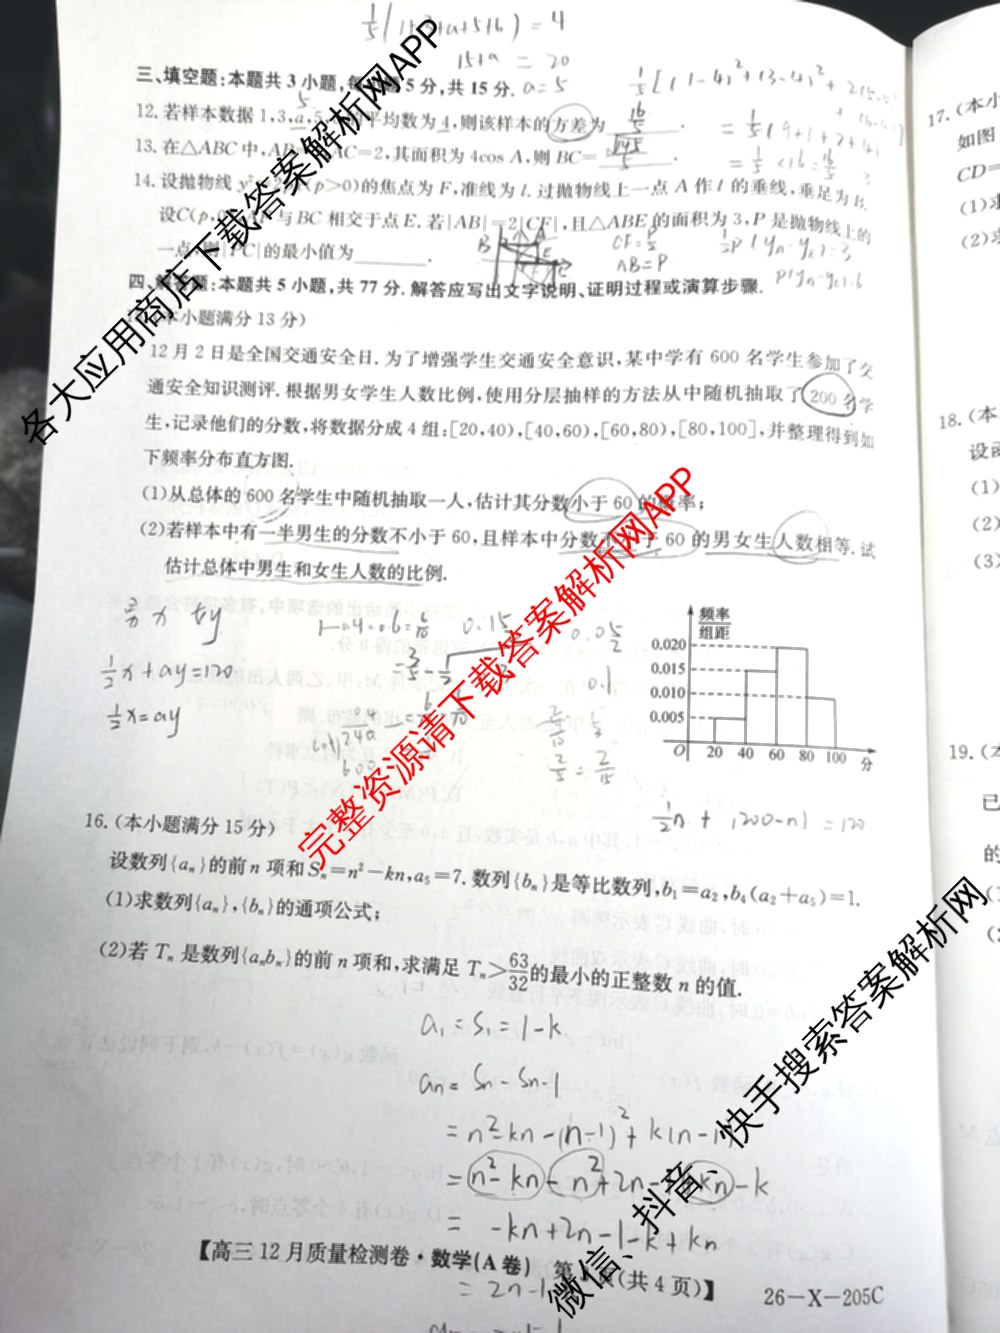 1/5(1+3+a+5+6)=4
15+a=20
a=5
三、填空题:本题共3小题,每小题5分,共15分.
12.若样本数据1,3,a,5,6的平均数为4,则该样本的方差为
13.在△ABC中,AB=,AC=2,其面积为4cos A,则BC=
14.设抛物线y²=2px(p>0)的焦点为F,准线为l.过抛物线上一点A作l的垂线,垂足为B.
设C(p,0),AF与BC相交于点E.若|AB|=2|CF|,且△ABE的面积为3,P是抛物线上的
一点,则|PC|的最小值为________.
CF=p/2
AB=P
四、解答题:本题共5小题,共77分.解答应写出文字说明、证明过程或演算步骤.
(本小题满分13分)
12月2日是全国交通安全日.为了增强学生交通安全意识,某中学有600名学生参加了交
通安全知识测评.根据男女学生人数比例,使用分层抽样的方法从中随机抽取了200名学
生,记录他们的分数,将数据分成4组:[20,40),[40,60),[60,80),[80,100],并整理得到如
下频率分布直方图.
(1)从总体的600名学生中随机抽取一人,估计其分数小于60的概率;
(2)若样本中有一半男生的分数不小于60,且样本中分数不小于60的男女生人数相等.试
估计总体中男生和女生人数的比例.
男x 女y
1/2x+ay=120
1/2x=ay
频率
组距
0.020
0.015
0.010
0.005
O 20 40 60 80 100 分
1/2n+(200-n)=120
16.(本小题满分15分)
设数列{aₙ}的前n项和Sₙ=n²-kn,a₅=7.数列{bₙ}是等比数列,b₁=a₂,b₄(a₂+a₅)=1.
(1)求数列{aₙ},{bₙ}的通项公式;
(2)若Tₙ是数列{aₙbₙ}的前n项和,求满足Tₙ>63/32的最小的正整数n的值.
a₁=S₁=1-k
aₙ=Sₙ-Sₙ₋₁
=n²-kn-(n-1)²+k(n-1)
=n²-kn-n²+2n-1+kn-k
=-kn+2n-1-k+kn
=2n-1
【高三12月质量检测卷·数学(A卷) 第3页(共4页)】
26-X-205C
17.(本小
如图
CD=
(1)求
(2)求
18.(本
设函
(1)
(2)
(3)
19.(本
已
的
各大应用商店下载答案解析网APP
完整资源请下载答案解析网APP
微信、抖音、快手搜索答案解析网